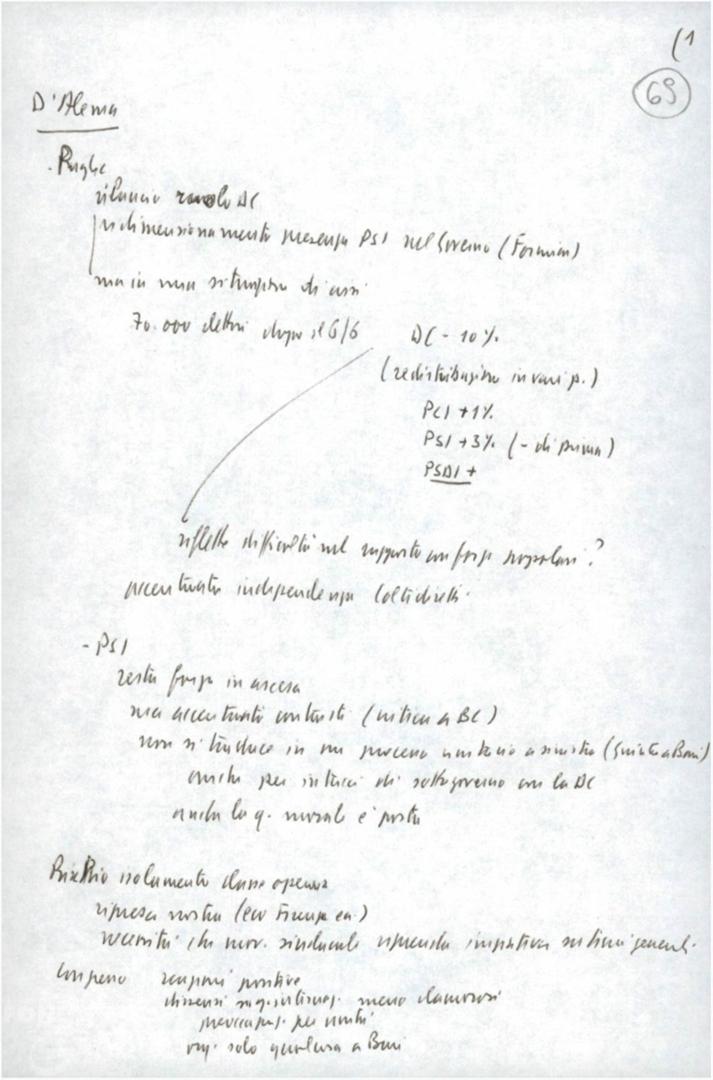 (1
69
D'Alema
- Puglia
rilancio ruolo DC
ridimensionamento presenza PSI nel Governo (Formica)
ma in una situazione di crisi
70.000 elettori dopo il 6/6
DC - 10%
(redistribuzione in vari p.)
PCI +1%
PSI +3% (- di prima)
PSDI +
riflette difficoltà nel rapporto con forze popolari?
accentuata indipendenza Coltidiretti
- PSI
resta forza in ascesa
ma accentuati contrasti (critica a BC)
non si traduce in un processo unitario a sinistra (Giunta a Bari)
anche per intrecci di sottogoverno con la DC
anche la q. morale è posta
isolamento classe operaia
ripresa nostra (
necessità che mov. sindacale riprenda iniziativa su temi generali
Congresso reazioni positive
dissensi meno clamorosi
preoccupaz. per unità
solo qualcosa a Bari